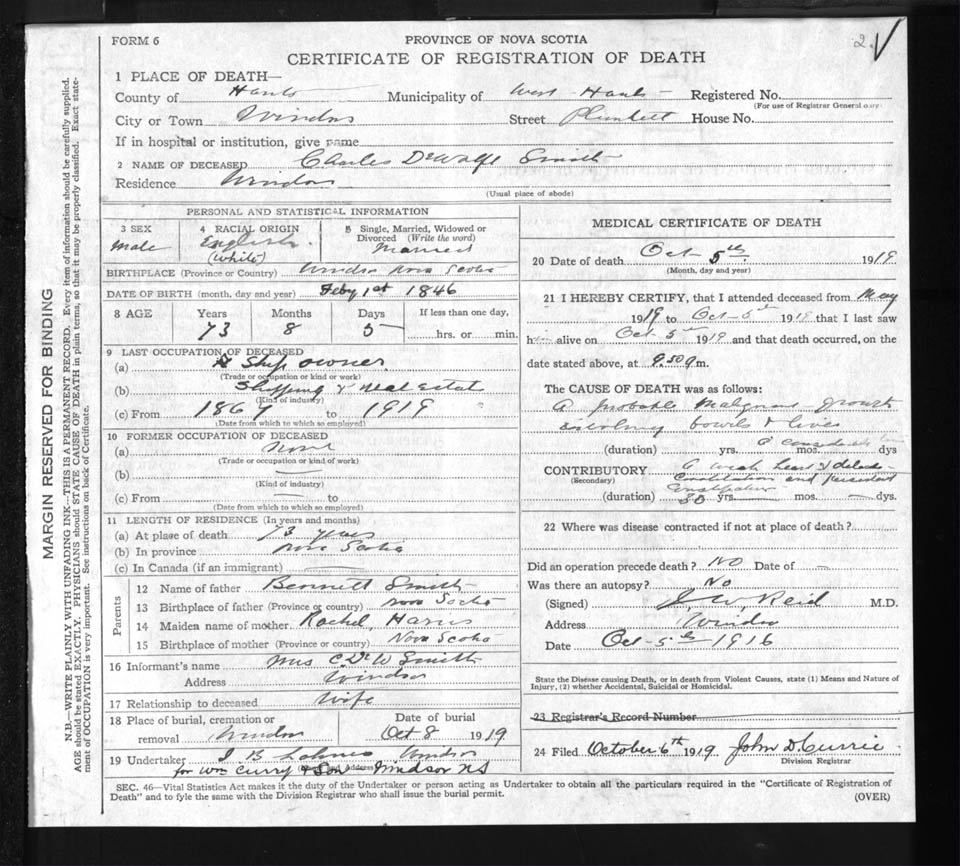 FORM 6
PROVINCE OF NOVA SCOTIA
2
CERTIFICATE OF REGISTRATION OF DEATH
1 PLACE OF DEATH—
County of Hants Municipality of West Hants Registered No.
(For use of Registrar General only)
City or Town Windsor Street Plunkett House No.
If in hospital or institution, give name
2 NAME OF DECEASED Charles DeWolfe Smith
Residence Windsor
(Usual place of abode)
MARGIN RESERVED FOR BINDING
N.B.—WRITE PLAINLY WITH UNFADING INK—THIS IS A PERMANENT RECORD. Every item of information should be carefully supplied.
AGE should be stated EXACTLY. PHYSICIANS should STATE CAUSE OF DEATH in plain terms, so that it may be properly classified. Exact state-
ment of OCCUPATION is very important. See instructions on back of Certificate.
PERSONAL AND STATISTICAL INFORMATION
3 SEX 4 RACIAL ORIGIN 5 Single, Married, Widowed or
Divorced (Write the word)
Male English Married
(White)
BIRTHPLACE (Province or Country) Windsor Nova Scotia
DATE OF BIRTH (month, day and year) Feby 1st 1846
8 AGE Years Months Days If less than one day,
73 8 5 hrs. or min.
9 LAST OCCUPATION OF DECEASED
(a) Ship owner
(Trade or occupation or kind of work)
(b) Shipping & Real Estate
(Kind of industry)
(c) From 1867 to 1919
(Date from which to which so employed)
10 FORMER OCCUPATION OF DECEASED
(a) None
(Trade or occupation or kind of work)
(b)
(Kind of industry)
(c) From to
(Date from which to which so employed)
11 LENGTH OF RESIDENCE (In years and months)
(a) At place of death 73 years
(b) In province Nova Scotia
(c) In Canada (if an immigrant)
Parents
12 Name of father Bennett Smith
13 Birthplace of father (Province or country) Nova Scotia
14 Maiden name of mother Rachel Harris
15 Birthplace of mother (Province or country) Nova Scotia
16 Informant's name Mrs C. DeW Smith
Address Windsor
17 Relationship to deceased Wife
18 Place of burial, cremation or Date of burial
removal Windsor Oct 8 1919
19 Undertaker Windsor
for Wm Curry & Son Windsor NS
MEDICAL CERTIFICATE OF DEATH
20 Date of death Oct 5th 1919
(Month, day and year)
21 I HEREBY CERTIFY, that I attended deceased from May
1919 to Oct-5th 1919 that I last saw
alive on Oct 5th 1919 and that death occurred, on the
date stated above, at 9.30 m.
The CAUSE OF DEATH was as follows:
A probable Malignant growth
involving bowels & liver
(duration) yrs. mos. dys
CONTRIBUTORY A weak heart &
(Secondary) constitution and persistent
constipation
(duration) 30 yrs. mos. dys.
22 Where was disease contracted if not at place of death?
Did an operation precede death? No Date of
Was there an autopsy? No
(Signed) J. W. Reid M.D.
Address Windsor
Date Oct-5th 1916
State the Disease causing Death, or in death from Violent Causes, state (1) Means and Nature of
Injury, (2) whether Accidental, Suicidal or Homicidal.
23 Registrar's Record Number
24 Filed October 6th 1919 John D. Currie
Division Registrar
SEC. 46—Vital Statistics Act makes it the duty of the Undertaker or person acting as Undertaker to obtain all the particulars required in the "Certificate of Registration of
Death" and to fyle the same with the Division Registrar who shall issue the burial permit.
(OVER)